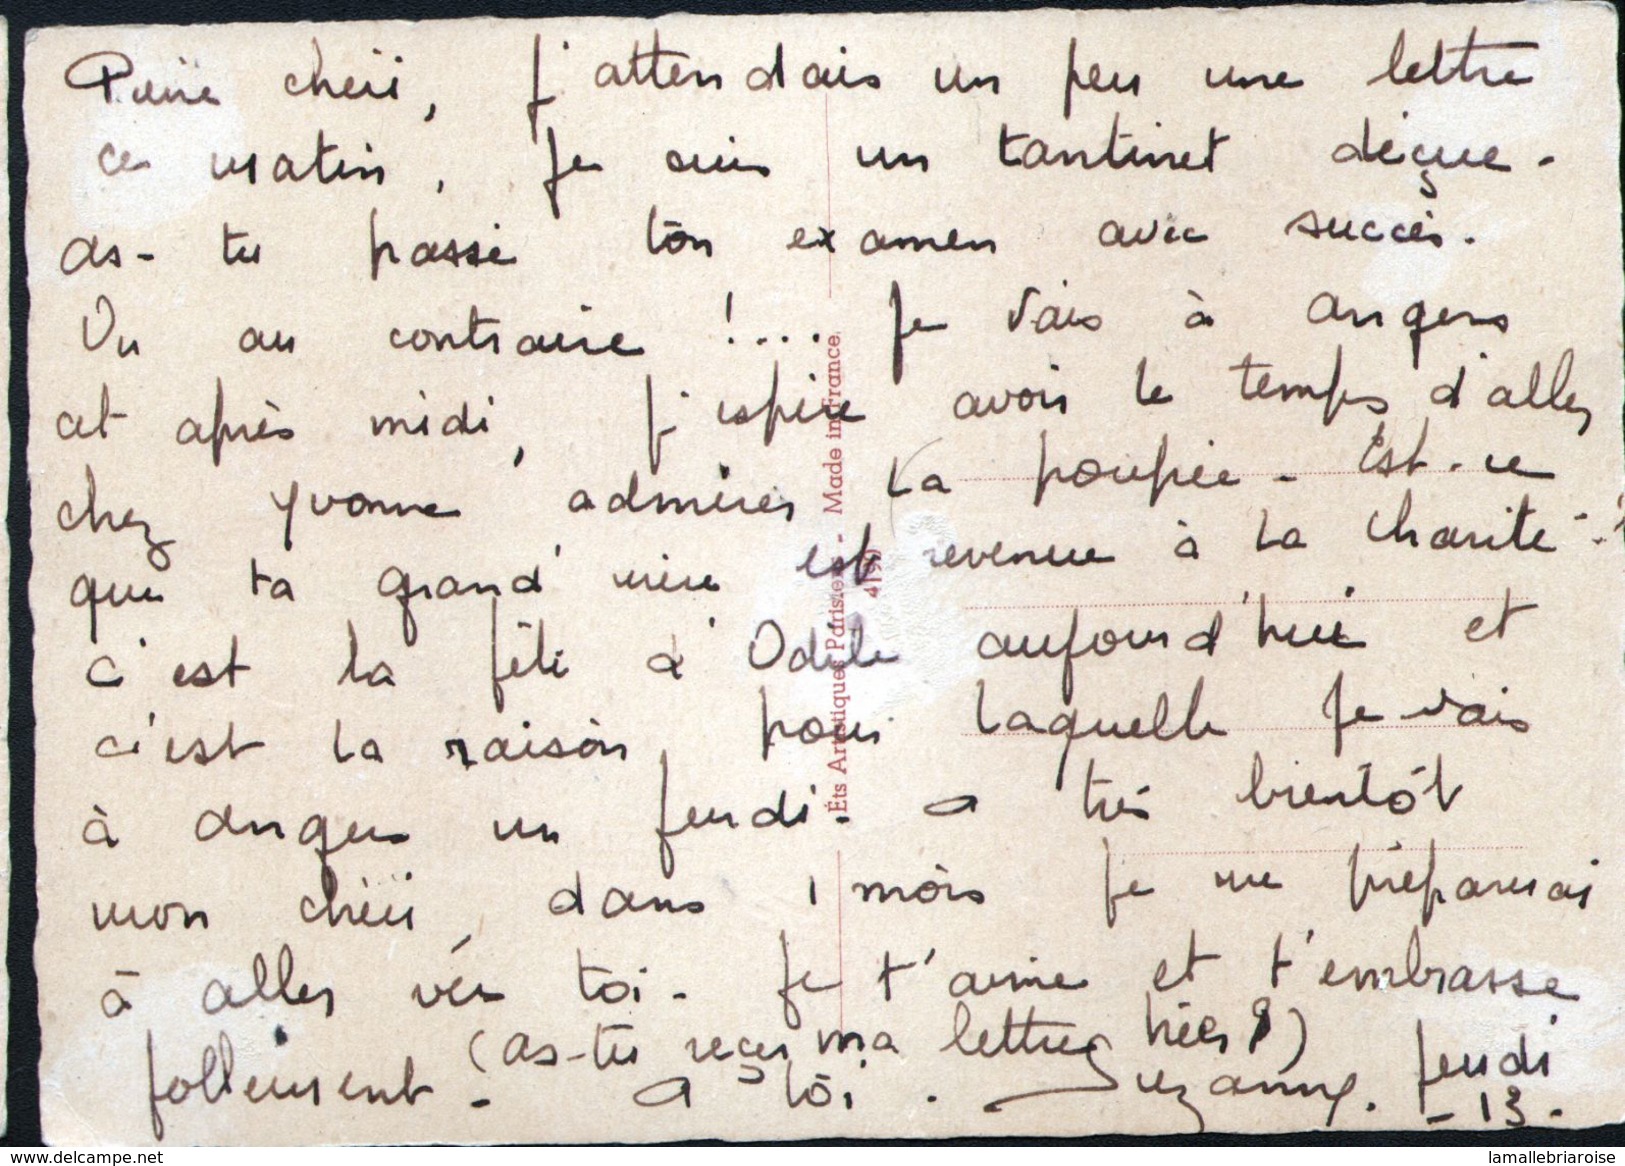 chéri, j'attendais un peu une lettre
ce matin, je suis un tantinet déçue.
as-tu passé ton examen avec succès.
Ou au contraire !... je vais à angers
cet après midi, j'espère avoir le temps d'aller
chez Yvonne admirer la poupée - Est-ce
que ta grand' mère est revenue à la Charité - ?
c'est la fête d'Odile aujourd'hui et
c'est la raison pour laquelle je vais
à angers un jeudi - a très bientôt
mon chéri, dans 1 mois je me préparerai
à aller vers toi - je t'aime et t'embrasse
follement - (as-tu reçu ma lettre hier ?)
a toi. Suzanne. jeudi
- 13 -
Éts Artistiques Parisiens - Made in France.
lamallebriaroise
www.delcampe.net